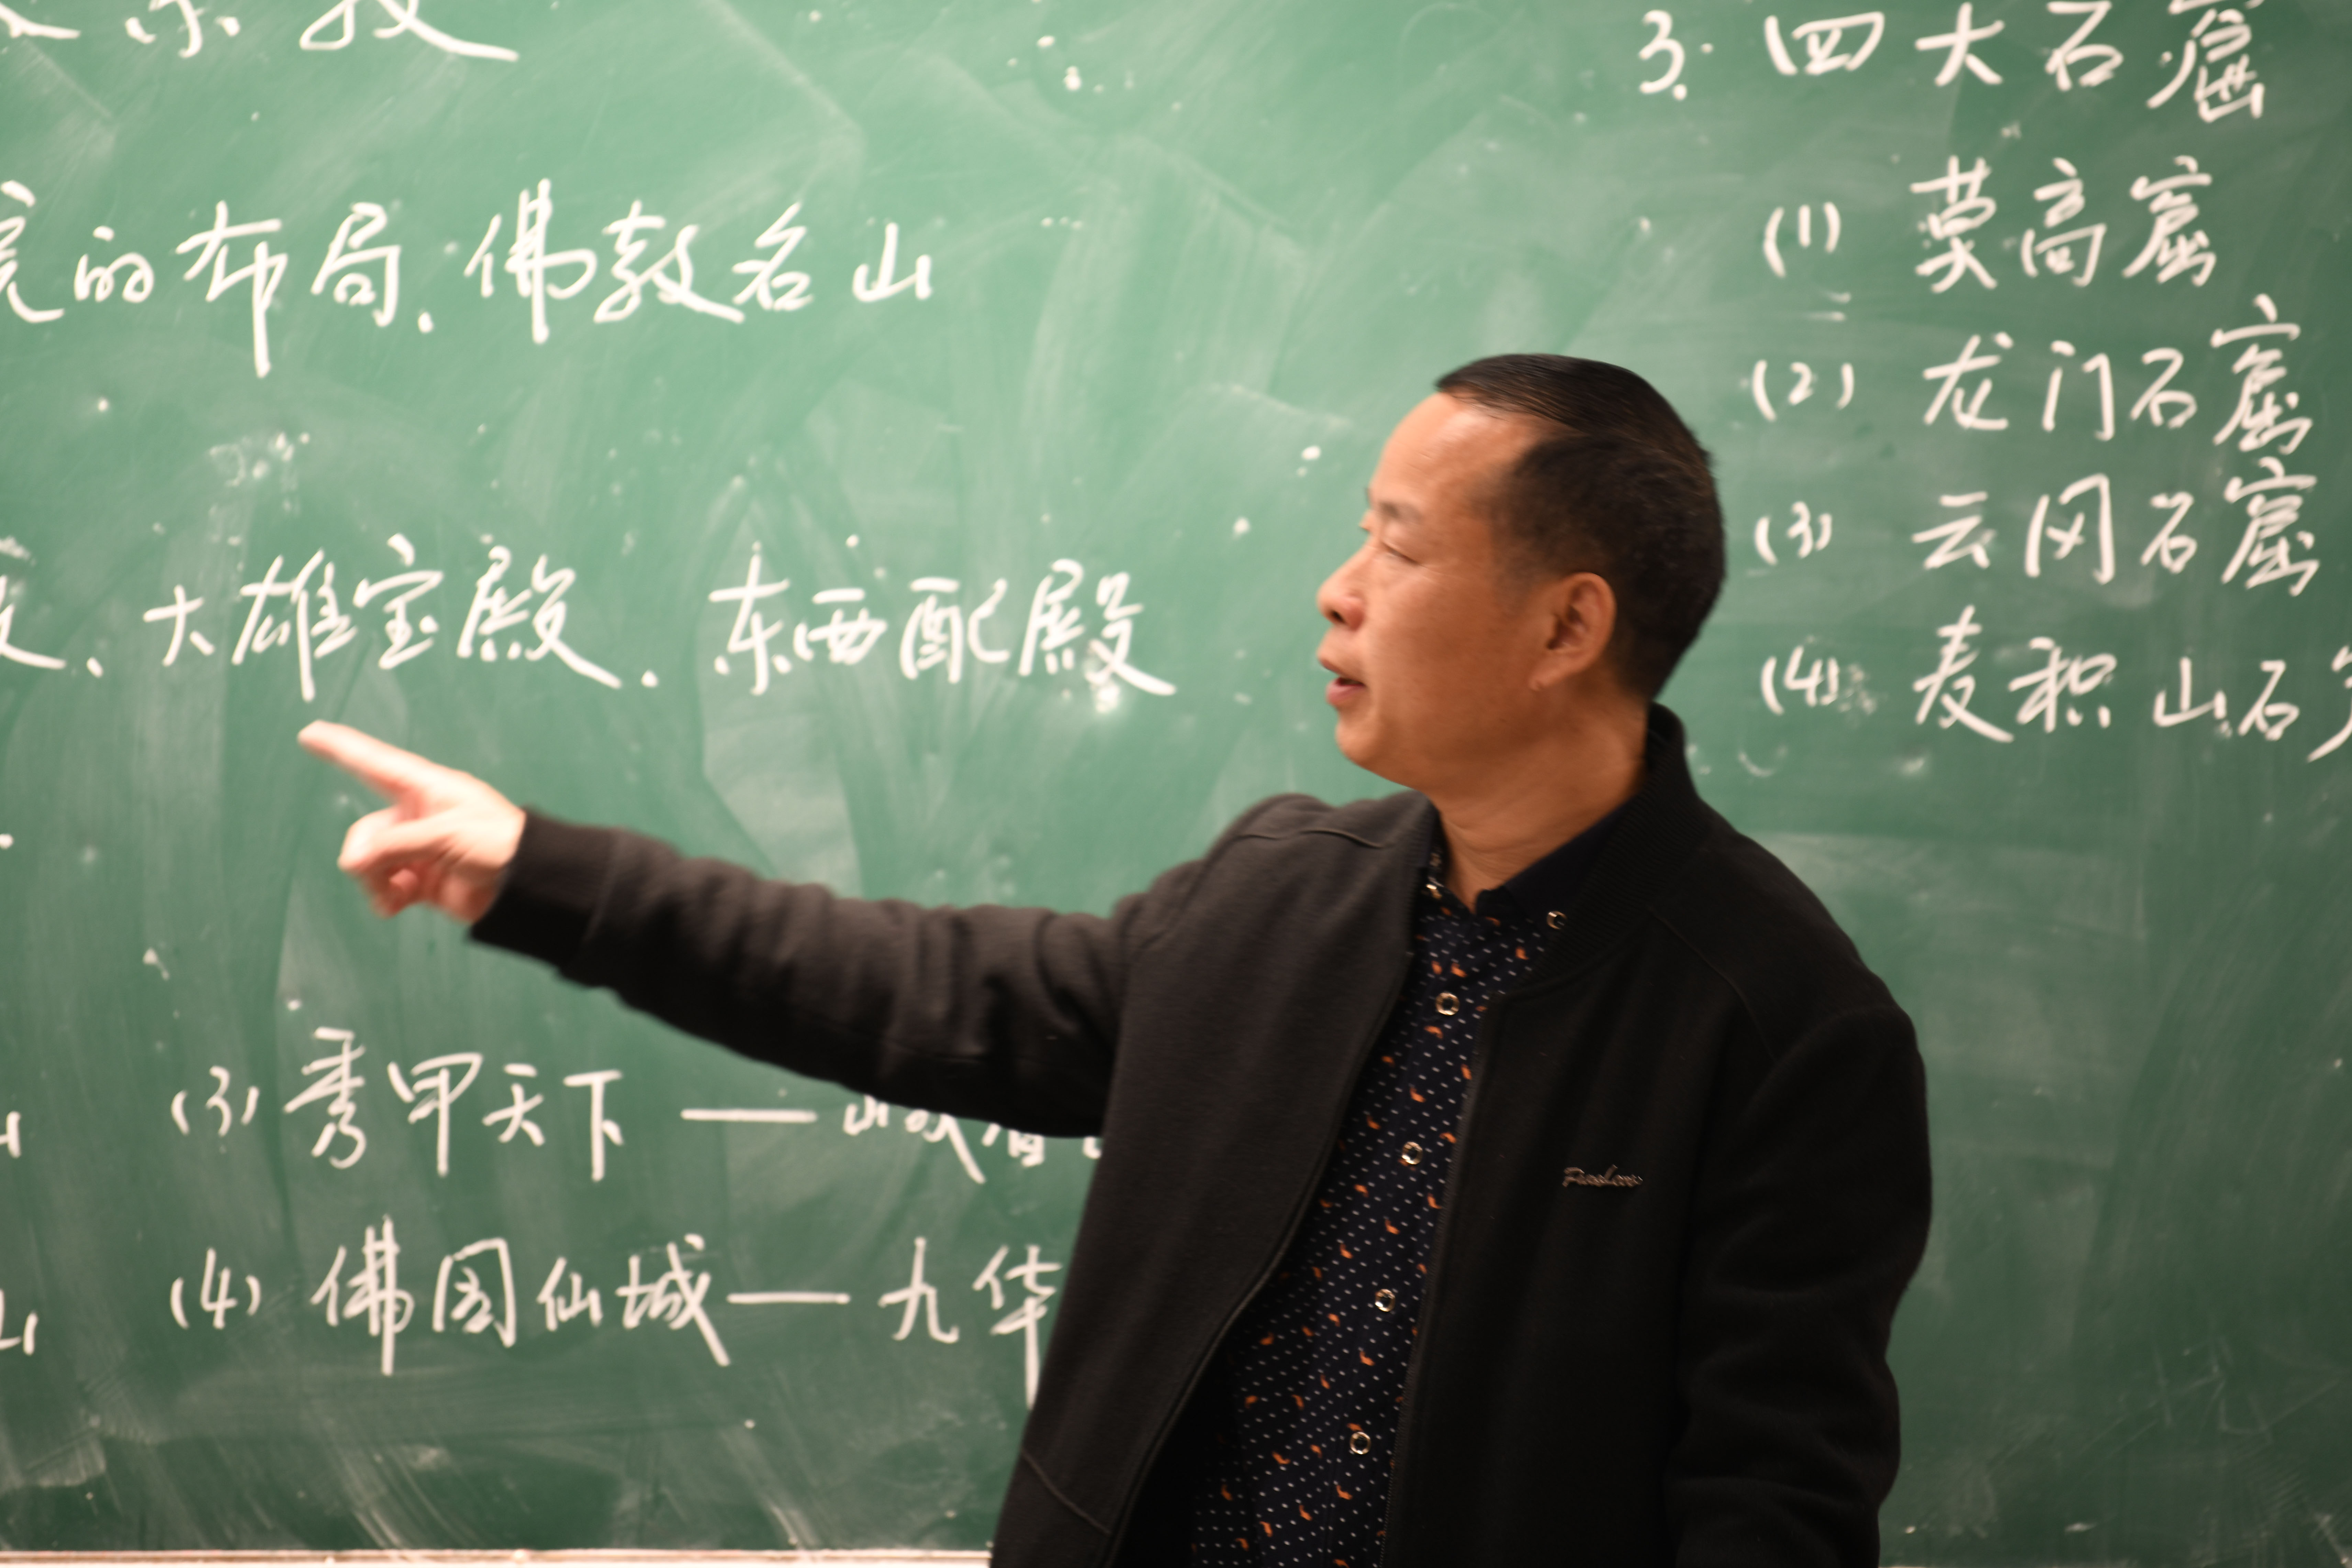 宗教
的布局、佛教名山
、大雄宝殿、东西配殿
山 (3) 秀甲天下 — 峨眉
山 (4) 佛国仙城 — 九华
3. 四大石窟
(1) 莫高窟
(2) 龙门石窟
(3) 云冈石窟
(4) 麦积山石